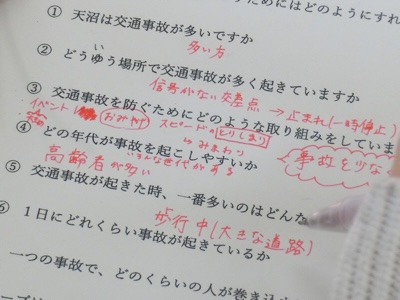 ためにはどのようにすれ
① 天沼は交通事故が多いですか
多い方
② どういゆう場所で交通事故が多く起きていますか
信号がない交差点 → 止まれ(一時停止)
③ 交通事故を防ぐためにどのような取り組みをしていま
イベント おみやげ スピードのとりしまり
みまわり
事故を少な
④ どの年代が事故を起こしやすいか
高齢者が多い いろんな世代がある
⑤ 交通事故が起きた時、一番多いのはどんな
歩行中(大きな道路)
⑥ 1日にどれくらい事故が起きているか
一つの事故で、どのくらいの人が巻き込